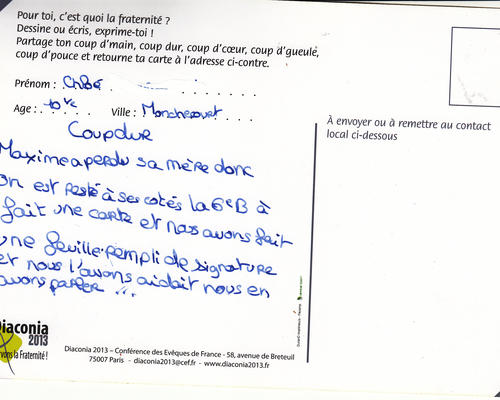 Pour toi, c'est quoi la fraternité ?
Dessine ou écris, exprime-toi !
Partage ton coup d'main, coup dur, coup d'cœur, coup d'gueule,
coup d'pouce et retourne ta carte à l'adresse ci-contre.
Prénom : Chloé
Age : Ville :
Coup dur
Maxime a perdu sa mère donc
on est resté à ses cotés la 6eB à
fait une carte et nous avons fait
une feuille rempli de signature
et nous l'avons aidait nous en
avons parler ...
À envoyer ou à remettre au contact
local ci-dessous
Diaconia
2013
vons la Fraternité !
Diaconia 2013 – Conférence des Evêques de France - 58, avenue de Breteuil
75007 Paris - diaconia2013@cef.fr - www.diaconia2013.fr